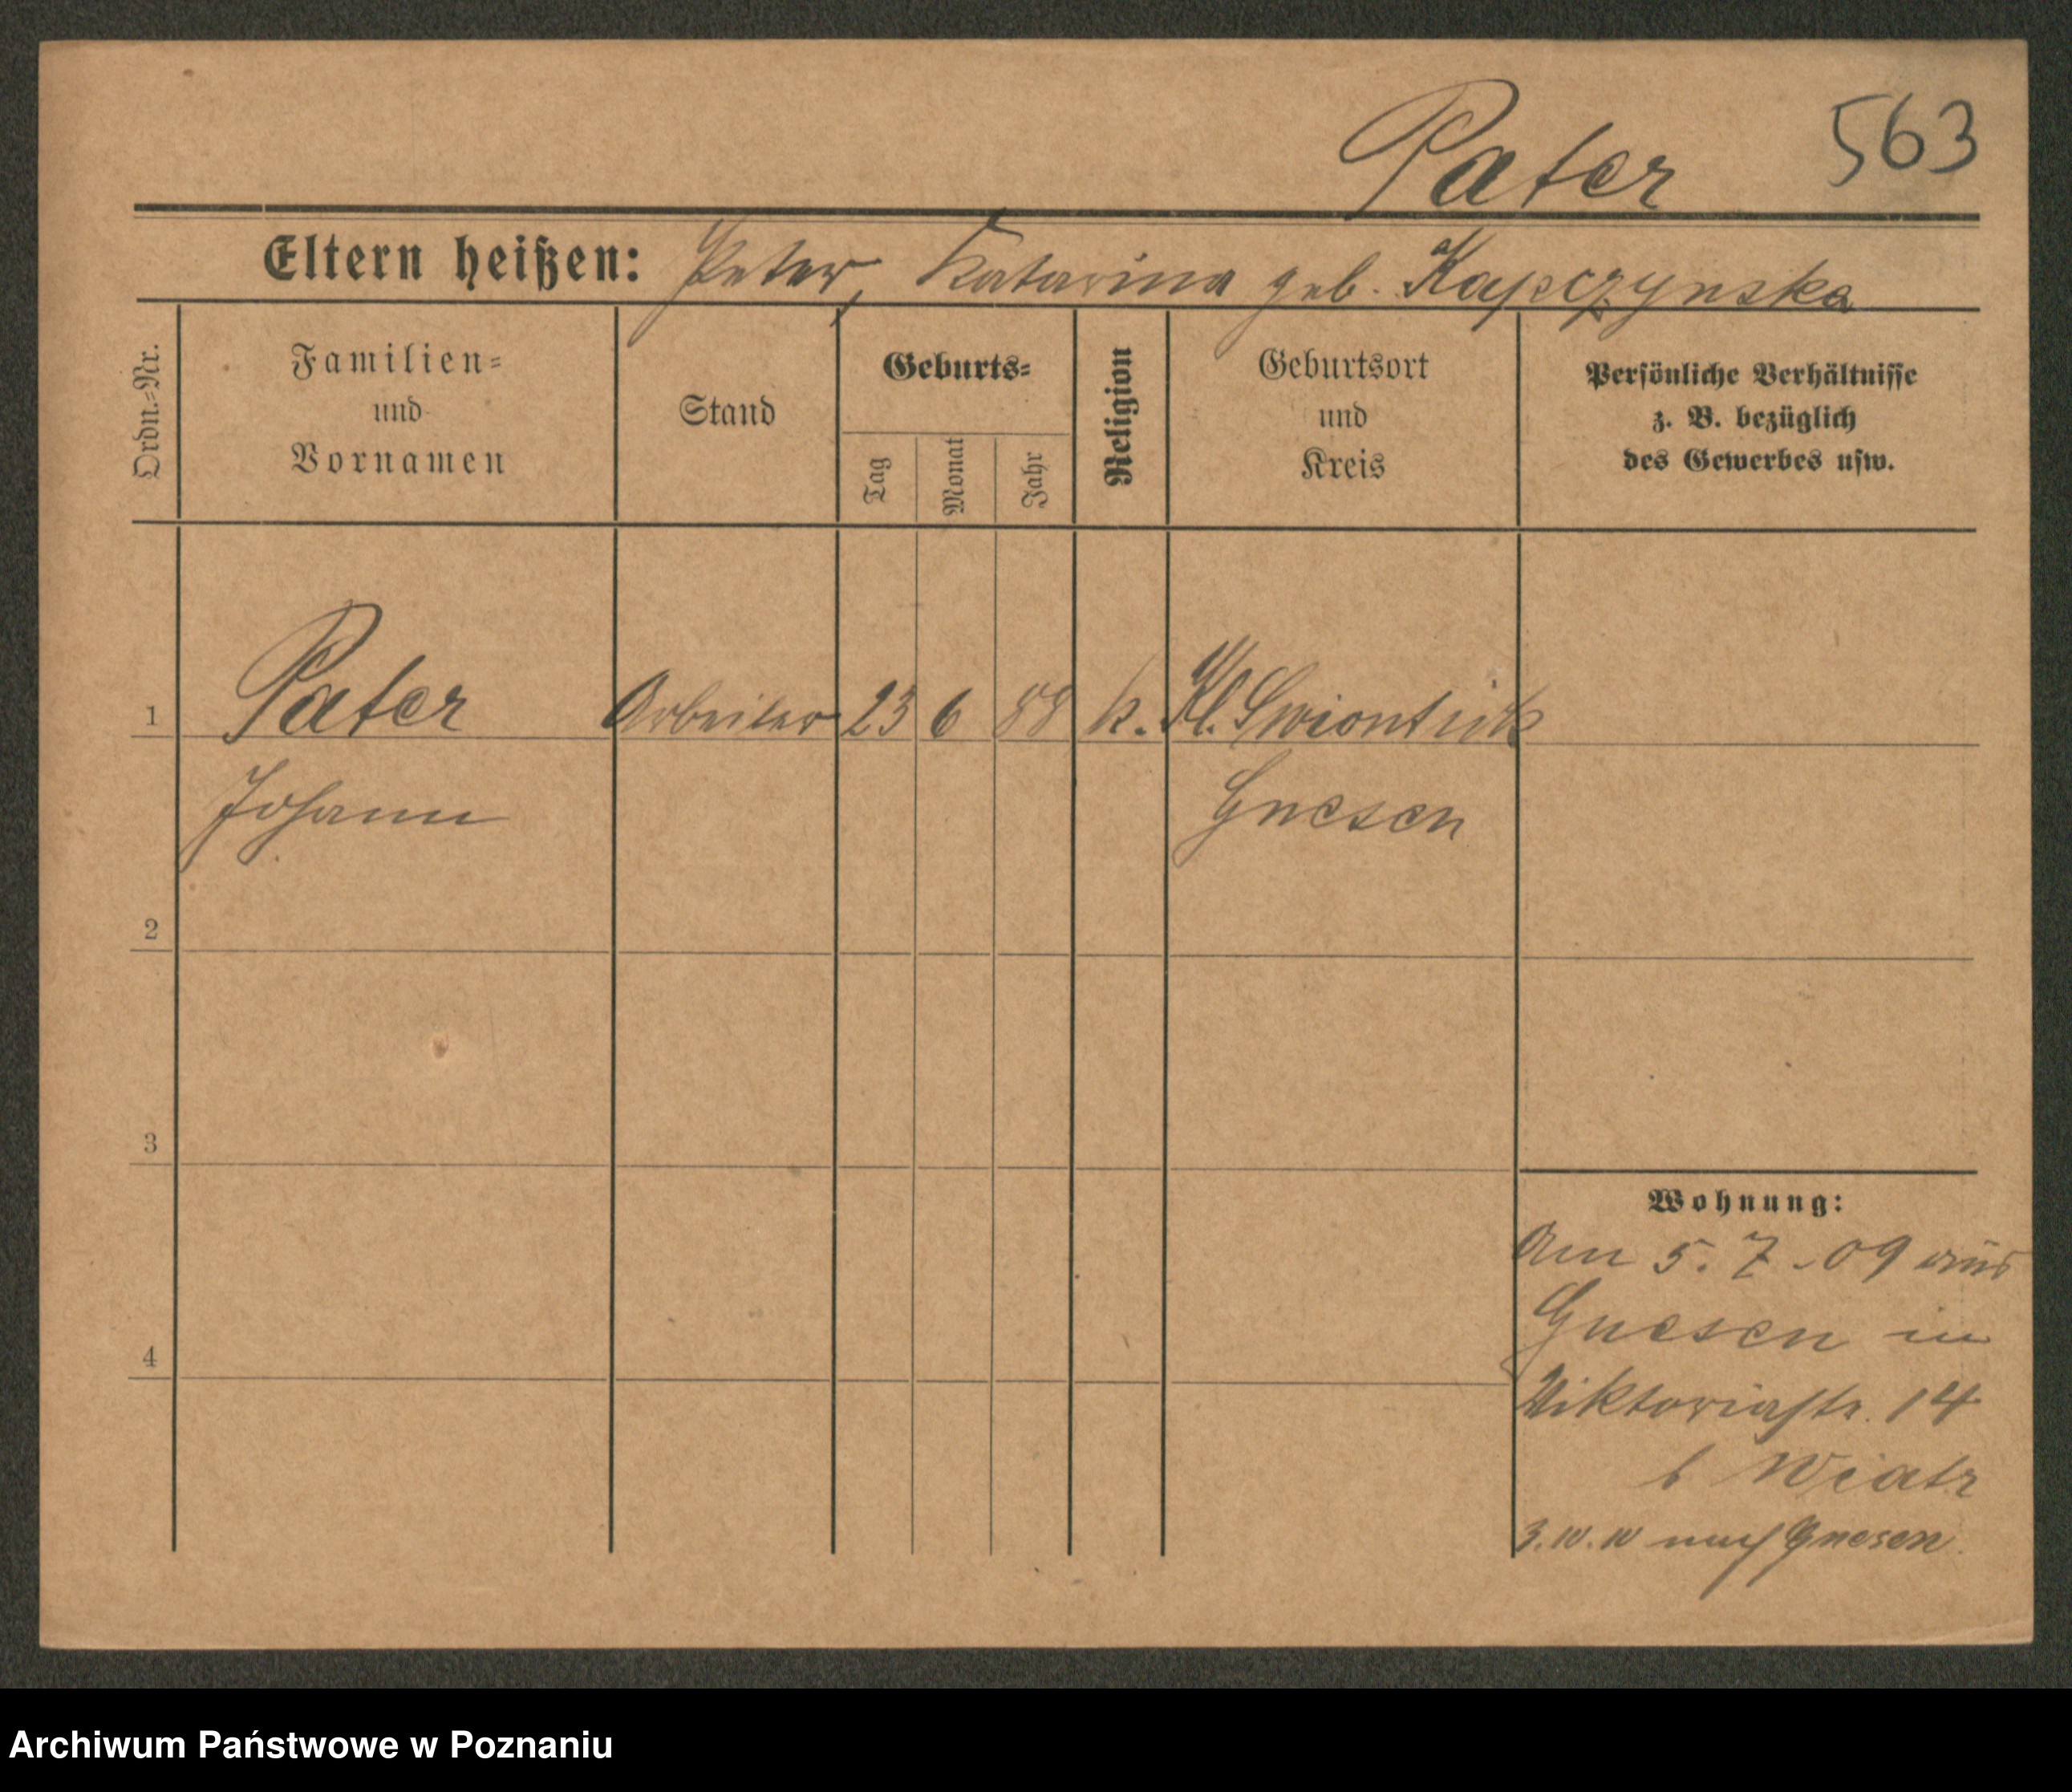 Pater 563
Eltern heißen: Peter, Katarina geb. Kapczynska
Ordn.-Nr.
Familien-
und
Vornamen
Stand
Geburts-
Tag
Monat
Jahr
Religion
Geburtsort
und
Kreis
Persönliche Verhältnisse
z. B. bezüglich
des Gewerbes usw.
1 Pater Arbeiter 23 6 88 k. Kl.
Johann Gnesen
2
3
4
Wohnung:
Am 5. 7. 09 aus
Gnesen in
Viktoriastr. 14
b Wiatr
3.10.10 nach Gnesen.
Archiwum Państwowe w Poznaniu